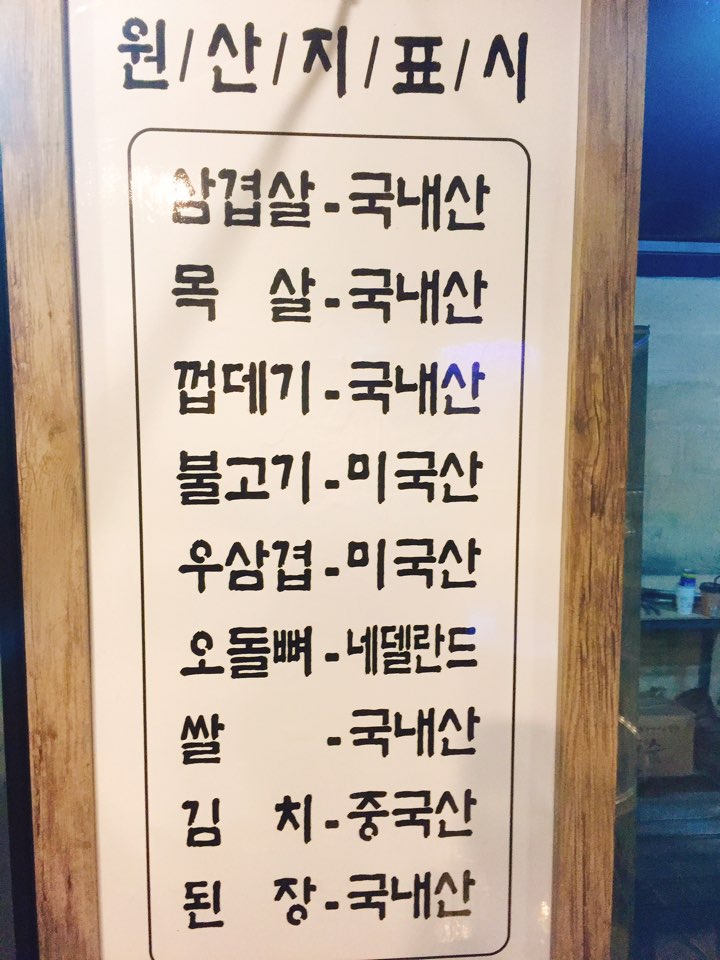 원/산/지/표/시
삼겹살-국내산
목 살-국내산
껍데기-국내산
불고기-미국산
우삼겹-미국산
오돌뼈-네델란드
쌀 -국내산
김 치-중국산
된 장-국내산